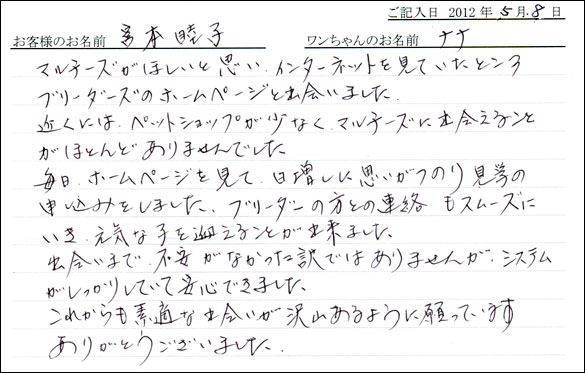 ご記入日 2012年5月8日
お客様のお名前 宮本睦子 ワンちゃんのお名前 ナナ
マルチーズがほしいと思い、インターネットを見ていたところ
ブリーダーズのホームページと出会いました。
近くには、ペットショップが少なく、マルチーズに出会えること
がほとんどありませんでした
毎日、ホームページを見て、日増しに思いがつのり見学の
申し込みをしました、ブリーダーの方との連絡もスムーズに
いき、元気な子を迎えることが出来ました。
出会いまで、不安がなかった訳ではありませんが、システム
がしっかりしていて安心できました。
これからも素適な出会いが沢山あるように願っています
ありがとうございました。